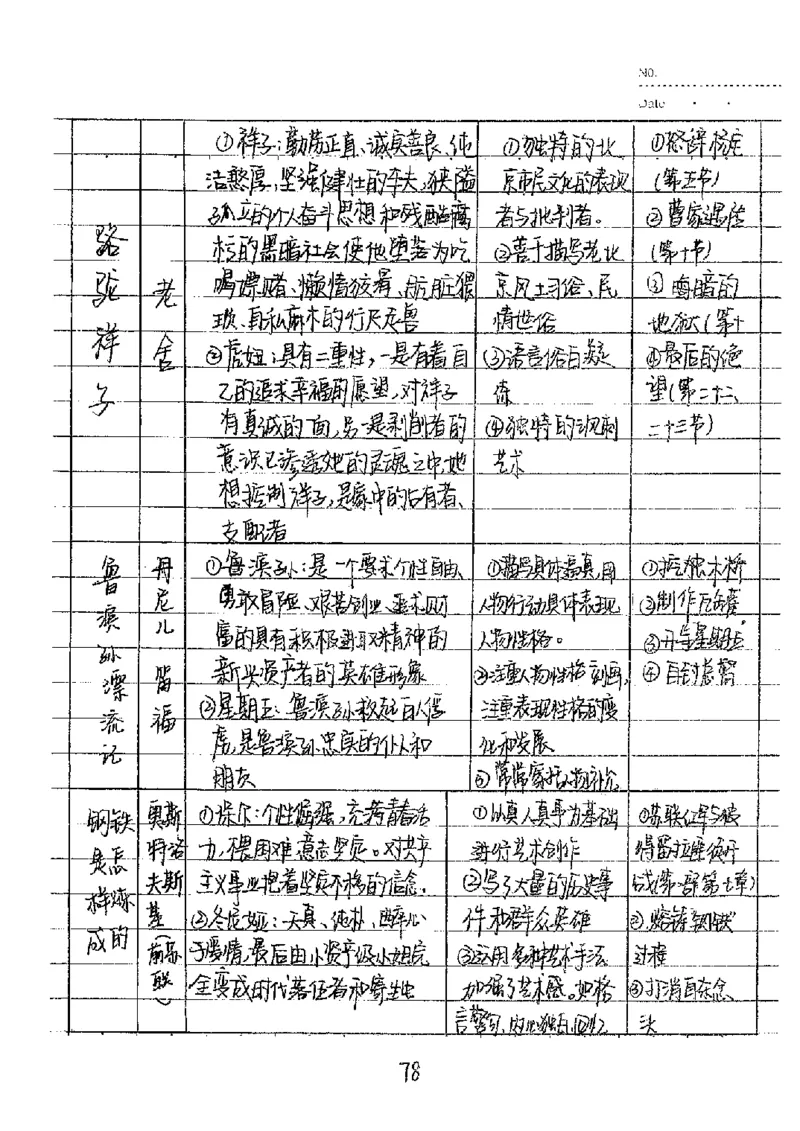 No.
Date
骆驼祥子
老舍
①祥子：勤劳正直、诚实善良、纯
洁憨厚，坚强健壮的车夫，狭隘
孤立的个人奋斗思想和残酷腐
朽的黑暗社会使他堕落为吃
喝嫖赌、懒惰狡猾、肮脏猥
琐、自私麻木的行尸走兽
②虎妞：具有二重性，一是有着自
己的追求幸福的愿望，对祥子
有真诚的一面，另一是剥削者的
意识已渗透她的灵魂之中，她
想控制祥子，是家中的占有者、
支配者
①独特的北
京市民文化的表现
者与批判者。
②善于描写老北
京风土习俗、民
情世俗
③语言俗白凝
练
④独特的讽刺
艺术
(第五节)
②曹家遇险
(第十节)
③阴暗的
地狱(第十
④最后的绝
望(第二十二、
二十三节)
鲁滨孙漂流记
丹尼儿·笛福
①鲁滨孙：是一个要求个性自由、
勇敢冒险、艰苦创业、追求财
富的具有积极进取精神的
新兴资产者的英雄形象
②星期五：鲁滨孙救的土人俘
虏，是鲁滨孙忠实的仆人和
朋友
①描写具体逼真，用
人物行动具体表现
人物性格。
②注重人物性格刻画，
注重表现性格的变
化和发展
③常常穿插人物补允
①挖独木桥
②制作瓦
③开导星期五
④
钢铁是怎样炼成的
奥斯特洛夫斯基（前苏联）
①保尔：个性倔强，充满青春活
力，不畏困难，意志坚定。对共产
主义事业抱着坚定不移的信念。
②冬妮娅：天真、纯朴、醉心
于爱情，最后由小资产级小姐完
全变成时代落伍者和寄生虫
①以真人真事为基础
进行艺术创作
②写了大量的历史事
件和群众英雄
③运用多种艺术手法
加强了艺术感。如格
言警句、内心独白、回忆
①苏联红军与彼
得留拉匪徒开
战(第一部第七章)
②熔铸钢铁
过程
③打消自杀念
头
78